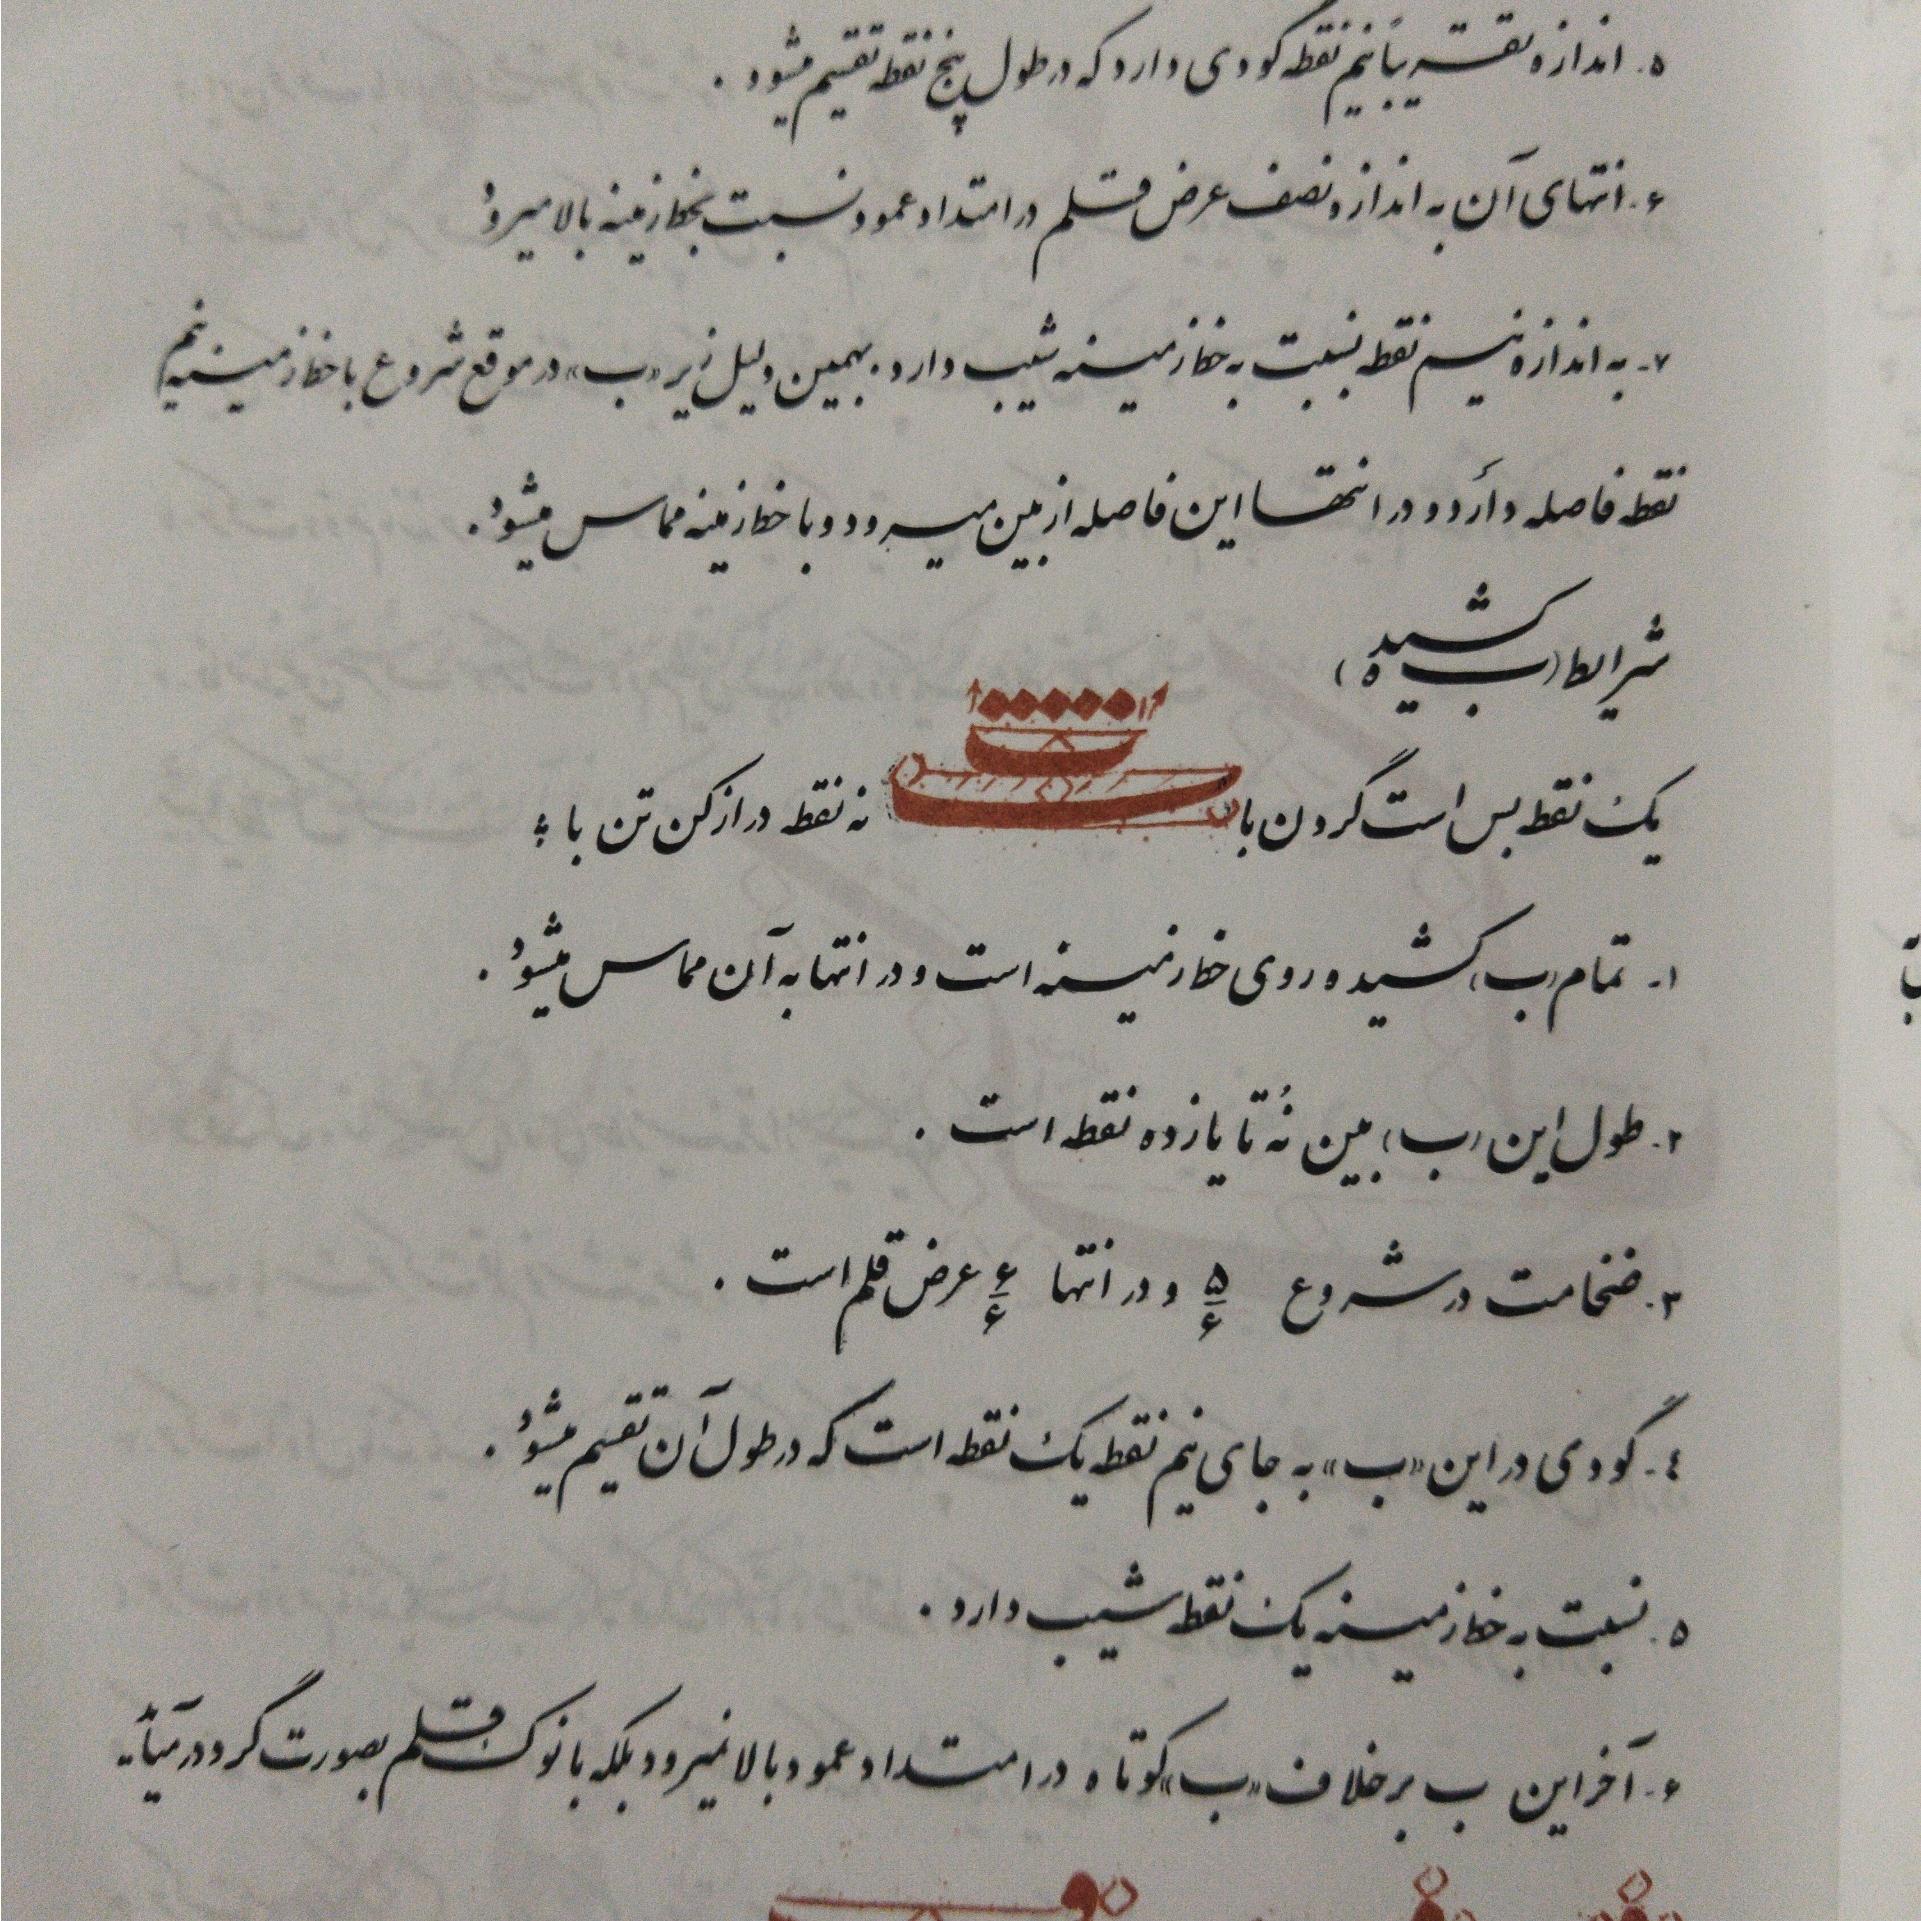 ۵. اندازه تقریباً نیم نقطه گودی دارد که در طول پنج نقطه تقسیم میشود.
۶. انتهای آن به اندازه نصف عرض قلم در امتداد عمود نسبت بخط زمینه بالا میرود
۷- به اندازه نیم نقطه نسبت به خط زمینه شیب دارد. بهمین دلیل زیر «ب» در موقع شروع با خط زمینه نیم
نقطه فاصله دارد و در انتها این فاصله از بین میرود و با خط زمینه مماس میشود.
شرایط (ب کشیده)
یک نقطه بس است گردن با نه نقطه دراز کن تن با
۱- تمام (ب) کشیده روی خط زمینه است و در انتها به آن مماس میشود.
۲. طول این (ب) بین نُه تا یازده نقطه است.
۳. ضخامت در شروع ۵/۶ و در انتها ۶/۶ عرض قلم است.
٤- گودی در این «ب» به جای نیم نقطه یک نقطه است که در طول آن تقسیم میشود.
۵. نسبت به خط زمینه یک نقطه شیب دارد.
۶- آخر این ب بر خلاف «ب» کوتاه در امتداد عمود بالا نمیرود بلکه با نوک قلم بصورت گرد در میآید